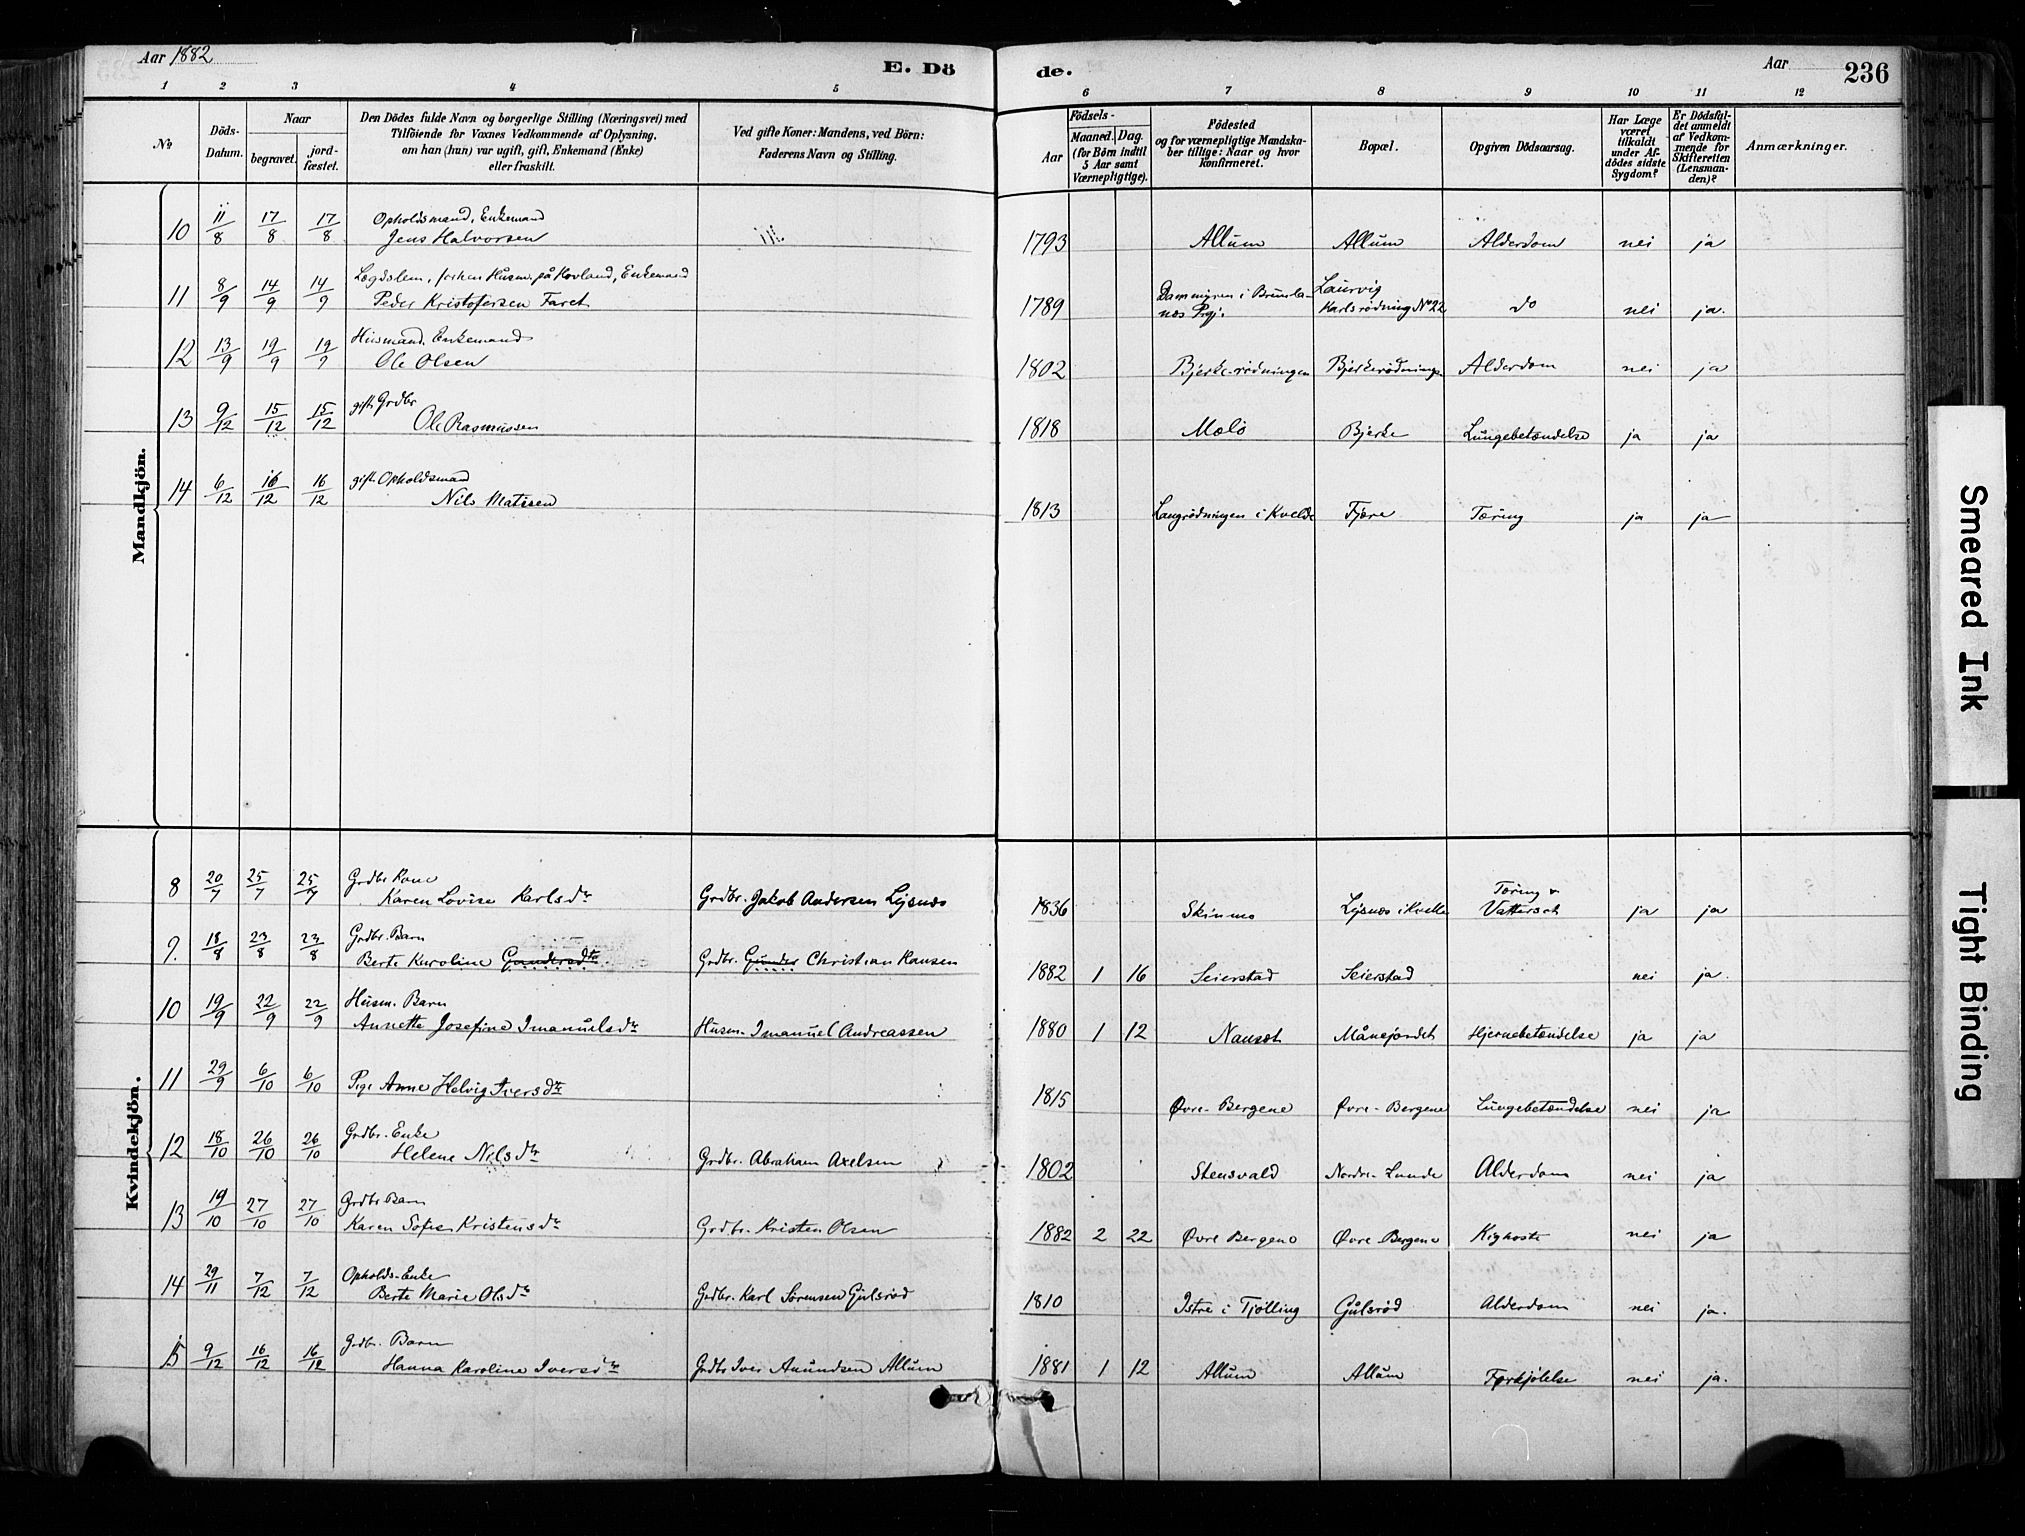 Aar 1882
E. Dö
de.
Aar
236
1 2 3 4 5 6 7 8 9 10 11 12
No
Döds-Datum.
Naar
begravet.
jord-fæstet.
Den Dödes fulde Navn og borgerlige Stilling (Næringsvei) med
Tilföiende for Vaxnes Vedkommende af Oplysning,
om han (hun) var ugift, gift, Enkemand (Enke)
eller fraskilt.
Ved gifte Koner: Mandens, ved Börn:
Faderens Navn og Stilling.
Födsels-
Aar
Maaned. Dag.
(for Börn indtil
5 Aar samt
Værnepligtige).
Födested
og for værnepligtige Mandska-
ber tillige: Naar og hvor
konfirmeret.
Bopæl.
Opgiven Dödsaarsag.
Har Læge
været
tilkaldt
under Af-
dödes sidste
Sygdom?
Er Dödsfal-
det anmeldt
af Vedkom-
mende for
Skifteretten
(Lensman-
den)?
Anmærkninger.
Mandkjön.
10 11/8 17/8 17/8 Opholdsmand, Enkemand
Jens Halvorsen 1793 Allum Allum Alderdom nei ja
11 8/9 14/9 14/9 Lægdslem, forhen Husm. på Hovland, Enkemand
Peder Kristofersen Faret 1789 i Brunla-
næs Prgj. Laurvig
Karlsrødning No 22 do nei ja.
12 13/9 19/9 19/9 Husmand, Enkemand
Ole Olsen 1802 Bjerke-rødningen Bjerkerødningen Alderdom nei ja
13 9/12 15/12 15/12 gift Grdbr
Ole Rasmussen 1818 Melö Bjerke Lungebetændelse ja ja
14 6/12 16/12 16/12 gift Opholdsmand
Nils Matisen 1813 Langrødningen i Kvelde Fjære Tæring ja ja
Kvindekjön.
8 20/7 25/7 25/7 Grdbr Kone
Karen Lovise Karlsdtr Grdbr. Jakob Andersen Lysnæs 1836 Skinmo Lysnæs i Kvelle Tæring &
Vattersot ja ja
9. 18/8 23/8 23/8 Grdbr. Barn
Berte Karoline Gundersdtr. Grdbr. Gunder Christian Hansen 1882 1 16 Seierstad Seierstad nei ja.
10 19/9 22/9 22/9 Husm. Barn
Annette Josefine Imanuelsdtr Husm. Imanuel Andreassen 1880 1 12 Nansæt Månejordet Hjernebetændelse ja ja
11 29/9 6/10 6/10 Pige Anne Helvig Iversdtr 1815 Øvre-Bergene Øvre-Bergene Lungebetændelse nei ja
12 18/10 26/10 26/10 Grdbr. Enke
Helene Nilsdtr Grdbr. Abraham Axelsen 1802 Stensvald Nordre-Lunde Alderdom nei ja
13 19/10 27/10 27/10 Grdbr Barn
Karen Sofie Kristensdtr Grdbr. Kristen Olsen 1882 2 22 Øvre Bergene Øvre-Bergene Kighoste nei ja
14 29/11 7/12 7/12 Opholds-Enke
Berte Marie Olsdtr Grdbr. Karl Sørensen Gulsrød 1810 Istre i Tjølling Gulsrød Alderdom nei ja.
15 9/12 16/12 16/12 Grdbr. Barn
Hanna Karoline Iversdtr Grdbr Iver Amundsen Allum 1881 1 12 Allum Allum Forkjølelse nei ja.
Smeared Ink
Tight Binding